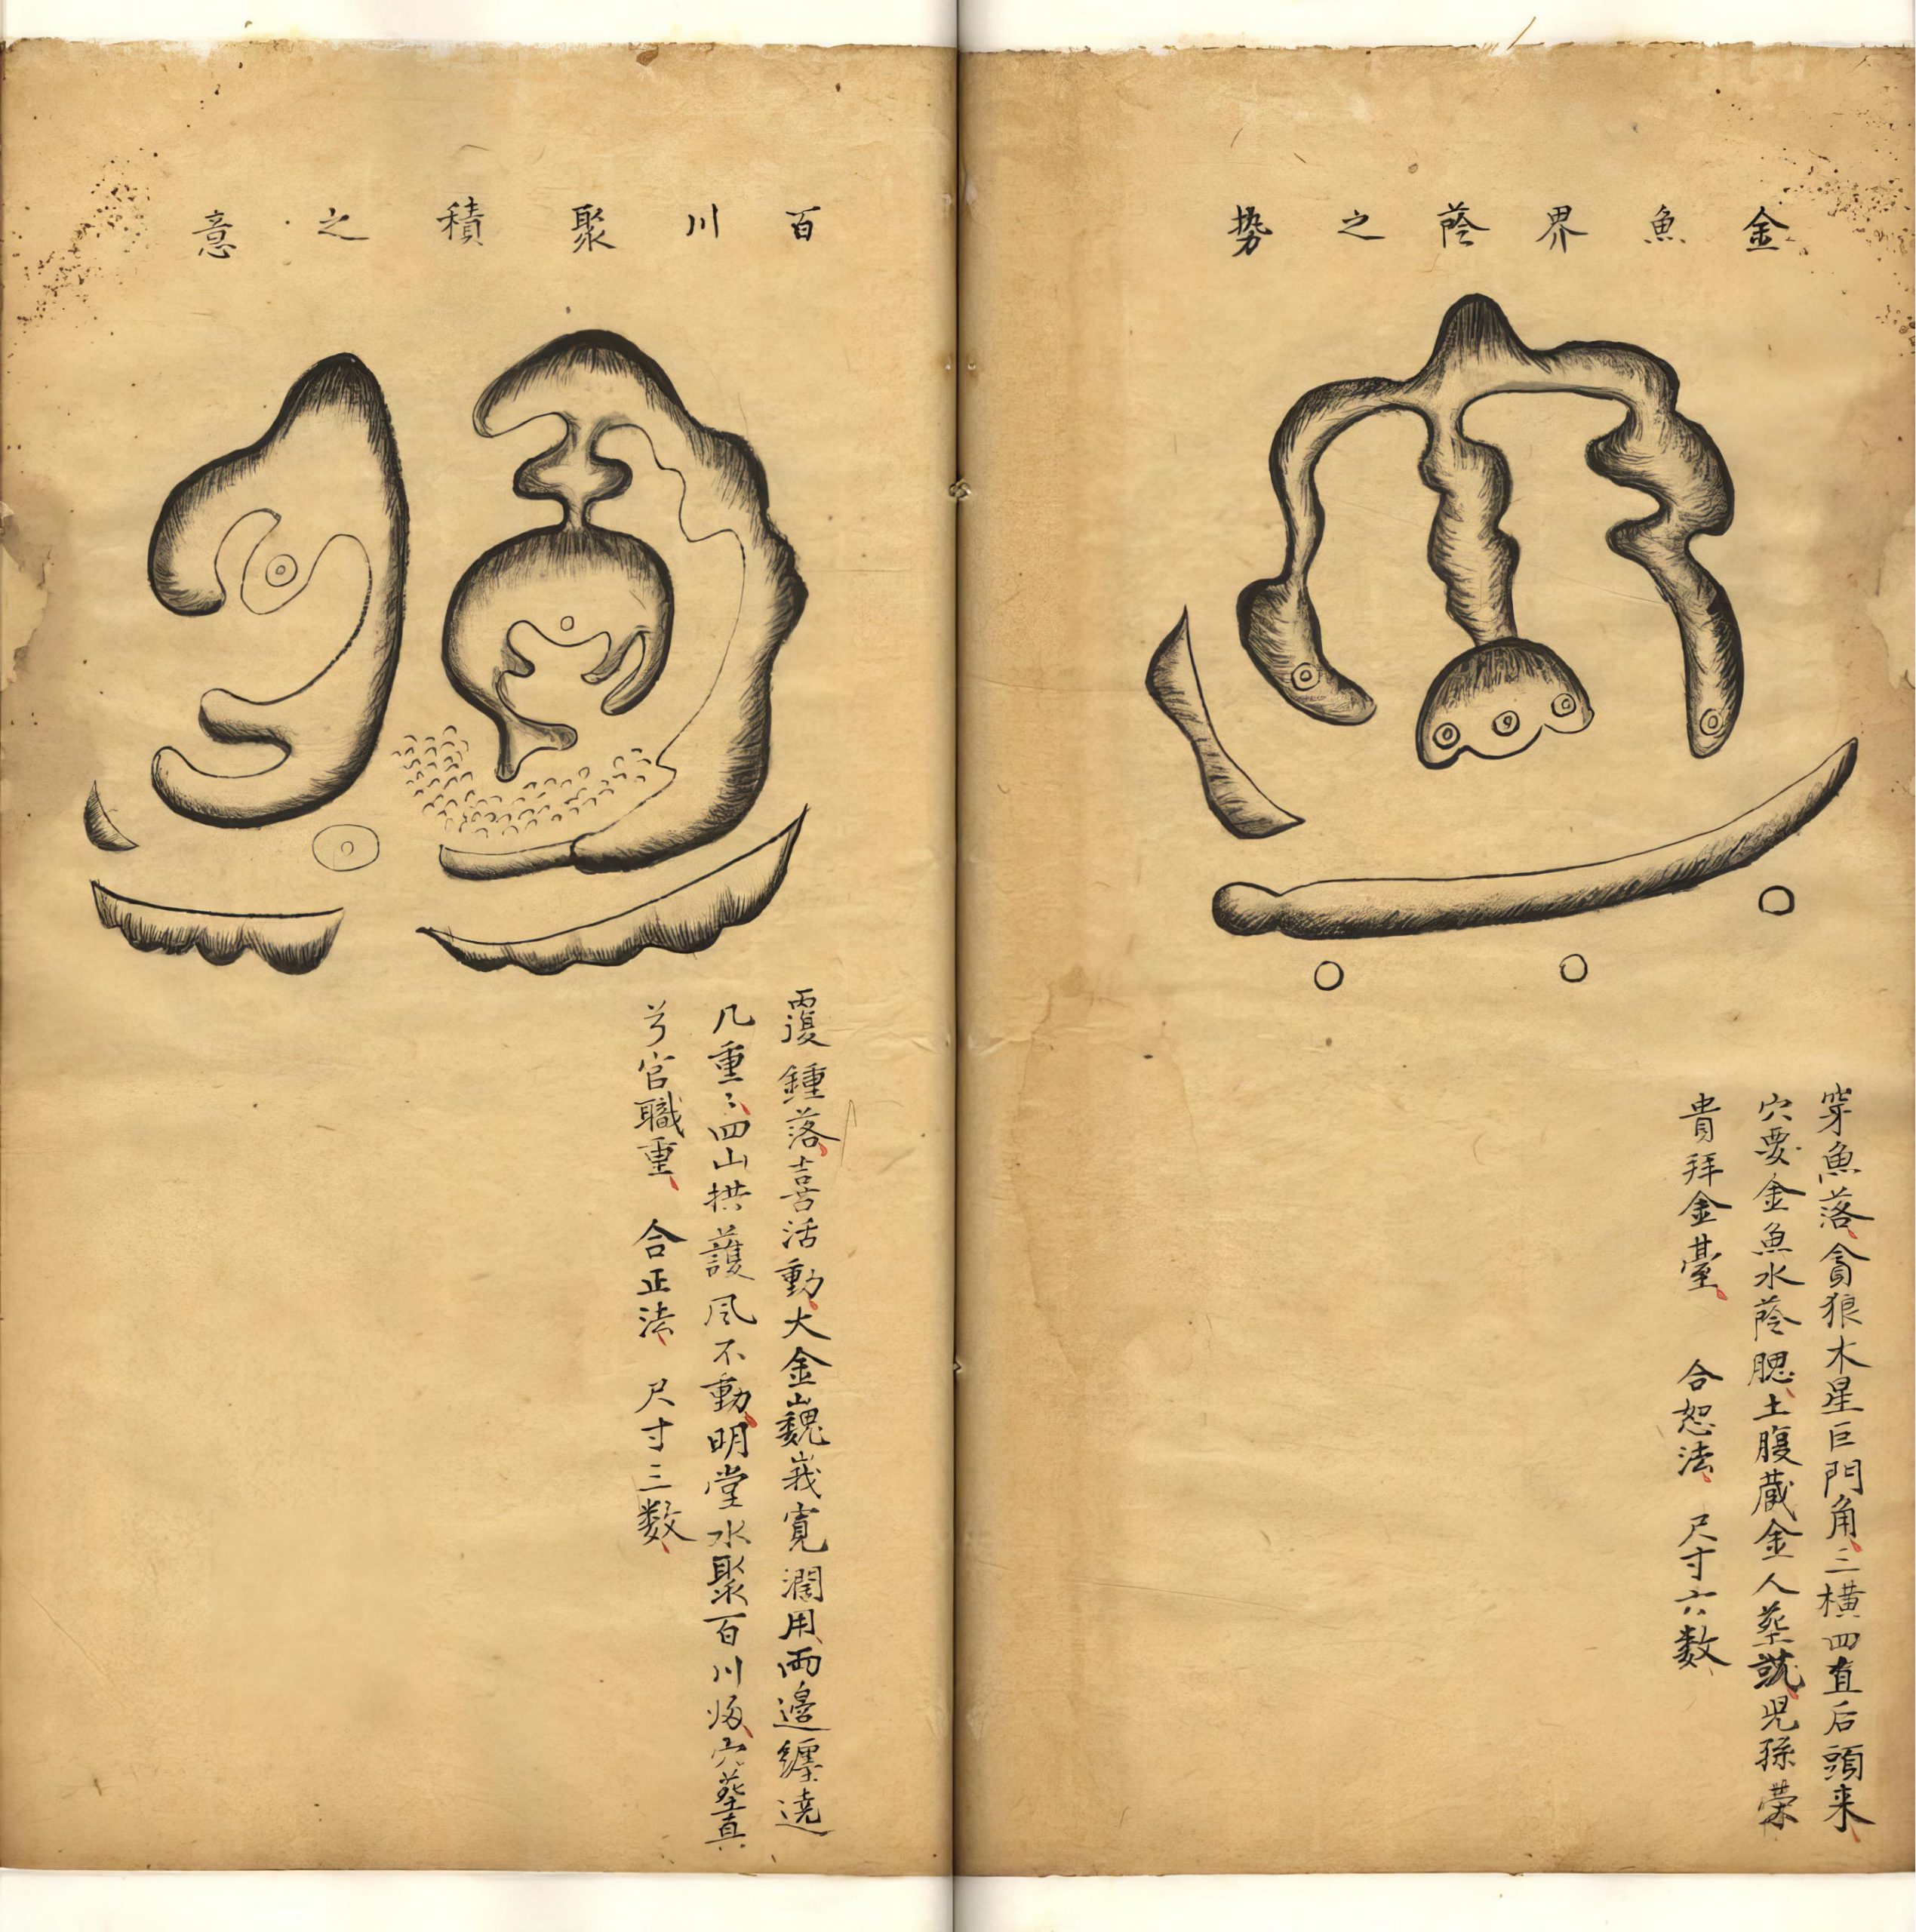 金魚界蔭之势
穿魚落貪狼木星巨門角三橫四直后頭来
穴要金魚水蔭腮土腹藏金人塟䇔児孫荣
貴拜金臺 合恕法 尺寸六数
百川聚積之意
覆鍾落喜活動大金巍峩寬濶用両邉纏遶
几重〻四山拱護风不動明堂水聚百川㷎穴塟真
兮官職重 合正法 尺寸三数